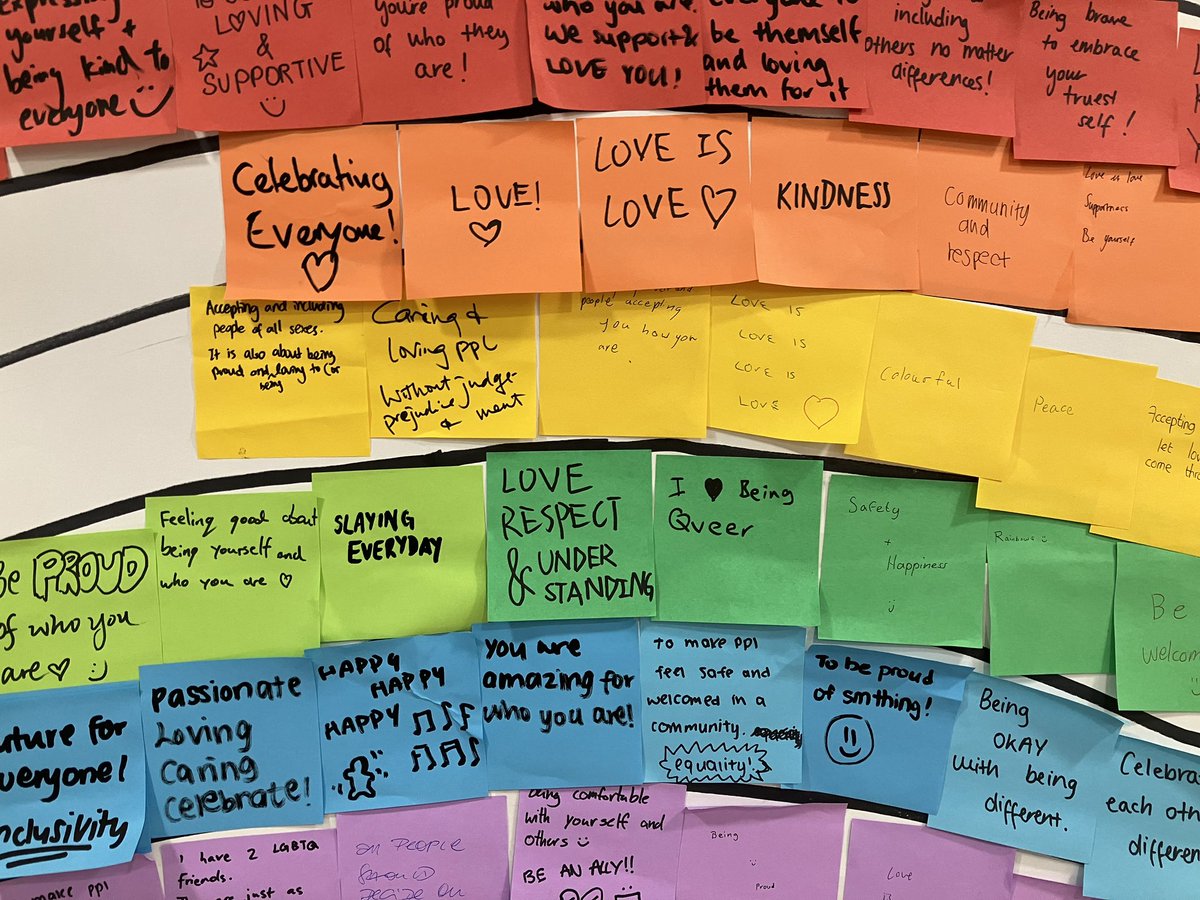 yourself +
being kind to
everyone
LOVING
&
SUPPORTIVE
you're proud
of who they
are!
who you are.
we support &
LOVE YOU!
everyone to
be themself
and loving
them for it
including
others no matter
differences!
Being brave
to embrace
your
truest
self!
Celebrating
Everyone!
LOVE!
LOVE IS
LOVE
KINDNESS
Community
and
respect
Love is love
Supportness
Be yourself
Accepting and including
people of all sexes.
It is also about being
proud and
being
Caring &
loving PPL
Without judge-
prejudice ment
&
people accepting
you how you
are.
LOVE IS
LOVE IS
LOVE IS
LOVE
Colourful
Peace
Accepting
let
come
Be PROUD
of who you
are
Feeling good about
being yourself and
who you are
SLAYING
EVERYDAY
LOVE
RESPECT
& UNDER
STANDING
I Being
Queer
Safety
+
Happiness
Rainbows
Be
for
everyone!
inclusivity
passionate
Loving
Caring
Celebrate!
HAPPY
HAPPY
HAPPY
You are
amazing for
who you are!
to make ppl
feel safe and
welcomed in a
community.
equality!
To be proud
of smthing!
Being
OKAY
with being
different.
each
make ppl
I have 2 LGBTQ
friends.
just as
PEOPLE
SHOULD
DECIDE ON
being comfortable
with yourself and
others
BE AN ALLY!!
Being
Proud
Love
is